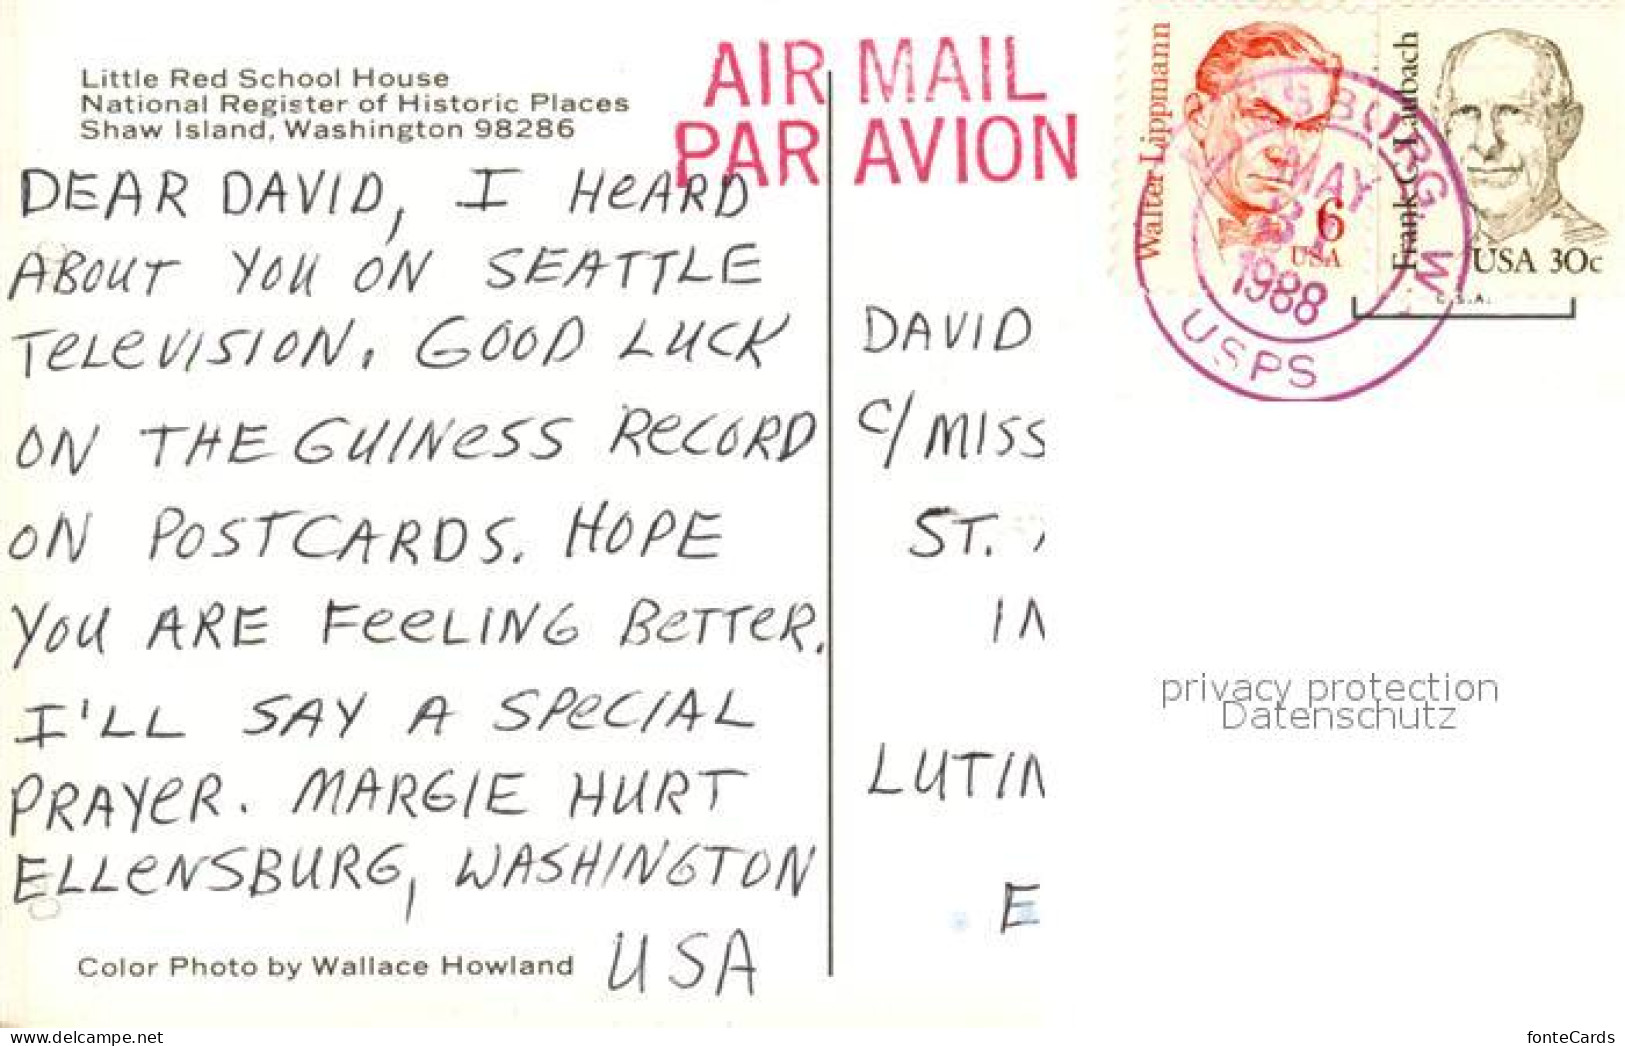 Little Red School House
National Register of Historic Places
Shaw Island, Washington 98286
AIR MAIL
PAR AVION
DEAR DAVID, I HeARD
ABOUT YOU ON SEATTLE
TeLeVISION. GOOD LUCK
ON THE GUINeSS ReCORD
ON POSTCARDS. HOPE
YOU ARE FeeLING BeTTeR.
I'LL SAY A SPeCIAL
PRAYeR. MARGIE HURT
ELLeNSBURG, WASHINGTON
USA
Color Photo by Wallace Howland
Walter Lippmann
6
USA
Frank C. Laubach
USA 30c
SBURG W
MAY
1988
USPS
C.S.A.
DAVID
C/ MISS
ST.
IN
LUTIN
E
privacy protection
Datenschutz
www.delcampe.net
fonteCards